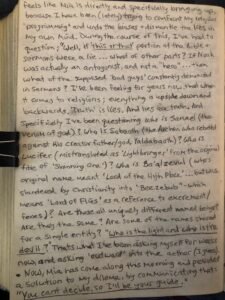 feels like Nick is directly and specifically bringing up
because I have been (let's say) to confront my religious
"programming" and undo the boxes & dismantle the lies in
my own mind. During the course of this, I've had to
question; "Well, if this or that portion of the Bible &
sermons were a lie... what of other parts? If Noah
was actually an antagonist, and not a "hero"... then
what of the supposed 'bad guys' constantly demonized
in sermons? I've been feeling for years now, that when
it comes to religions; everything is upside down and
backwards. Truths are lies. And lies are truth. And
Specifically I've been questioning who is Samael (the
venum of god)? Who is Sabaoth (the Archon who rebelled
against his creator father/god, Yaldabaoth)? Who is
Lucifer (mistranslated as 'Lightbringer' from the original
title of "Shining One")? Who is Ba'alzevul (who's
original name meant 'Lord of the High Place'... but was
slandered by Christianity into 'Beezebub' - which
means 'Lord of Flies' as a reference to excrement/
feces)? Are those all uniquely different named beings?
Are they the same? Are some of the names shared
for a single entity? "Who is the light and who is the
devil?" That's what I've been asking myself for weeks
now, and asking 'outward' into the aether (I guess).
• Now, Mia has come along this morning and provided
a solution to my dilemma, by communicating that:
"You can't decide, so I'll be your guide."